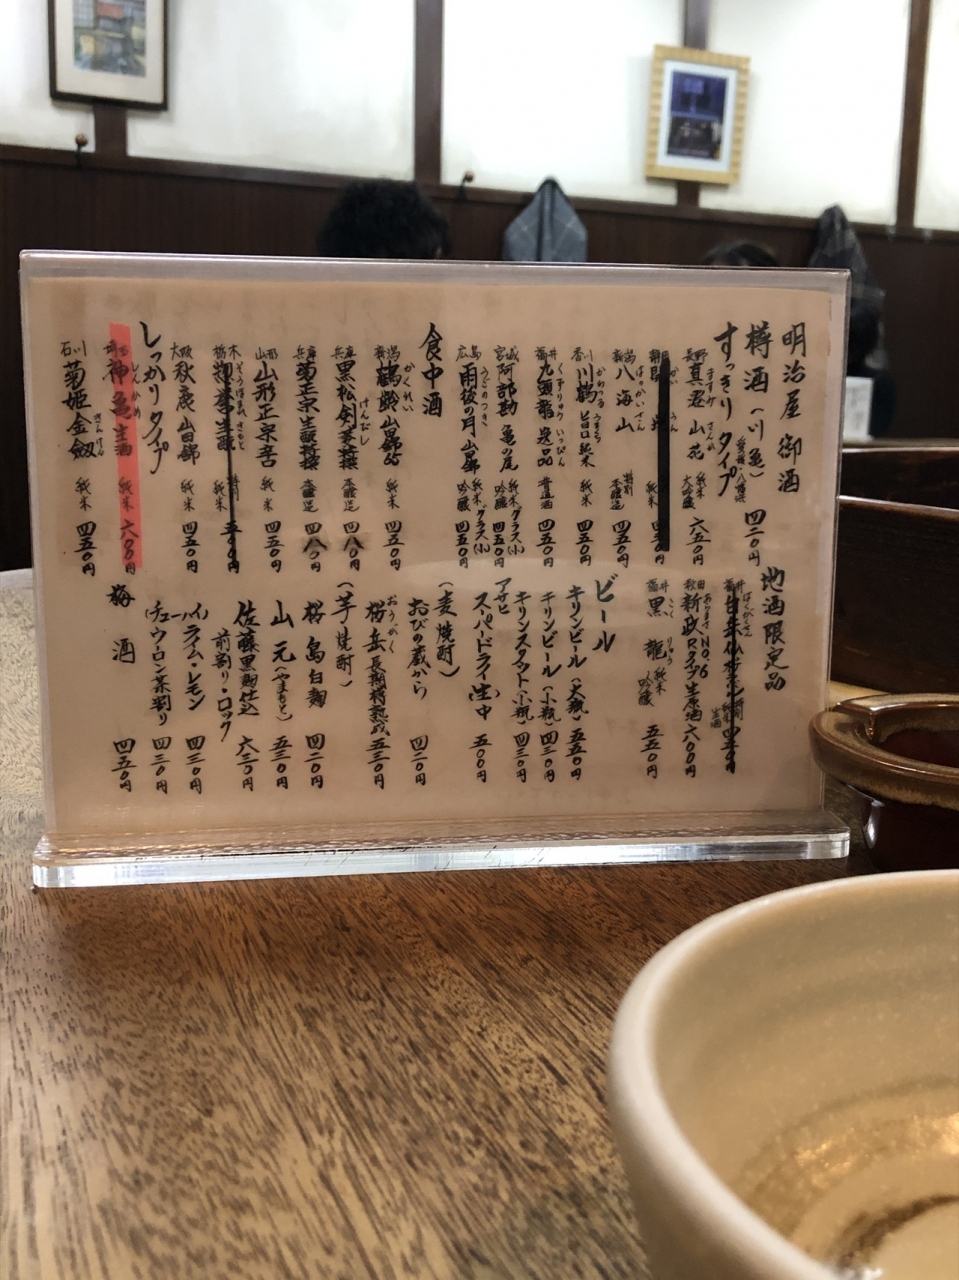 明治屋 御酒
樽酒(川亀) 四二〇円
愛媛八幡浜
すっきりタイプ
長野 真澄 ますみ 山花 さんか 純米大吟醸 六五〇円
純米 四五〇円
新潟 八海山 はっかいさん 特別本醸造 四五〇円
香川 川鶴 かわつる 旨口純米 うまくち 純米 四五〇円
福井 九頭龍 くずりゅう 逸品 いっぴん 普通酒 四五〇円
宮城 阿部勘 亀の尾 純米吟醸 グラス(小) 四五〇円
広島 雨後の月 うごのつき 山田錦 純米吟醸 グラス(小) 四五〇円
食中酒
新潟 鶴齢 かくれい 山田錦 純米 四五〇円
兵庫 黒松剣菱 けんびし 本醸造 四八〇円
兵庫 菊正宗 本醸造 四八〇円
山形 山形正宗 辛口 純米 四五〇円
栃木 特別純米
しっかりタイプ
大阪 秋鹿 山田錦 純米 四五〇円
埼玉 神亀 しんかめ 生酒 純米 六〇〇円
石川 菊姫 金劔 きんけん 純米 四五〇円
地酒限定品
福井
秋田 新政 あらまさ NO.6 Rタイプ 生原酒 六〇〇円
福井 黒龍 こくりゅう 純米吟醸 五五〇円
ビール
キリンビール(大瓶) 五五〇円
キリンビール(小瓶) 四三〇円
キリンスタウト(小瓶) 四三〇円
アサヒスーパードライ(生)中 五〇〇円
(麦焼酎)
おびの蔵から 四二〇円
桜岳 おうがく 長期特熟成 五三〇円
(芋焼酎)
桜島白麹 四二〇円
山元(やまもと) 五三〇円
佐藤黒麹仕込 六三〇円
前割り・ロック
(チューハイ)ライム・レモン 四三〇円
チュウ・ウーロン茶割り 四三〇円
梅酒 四五〇円